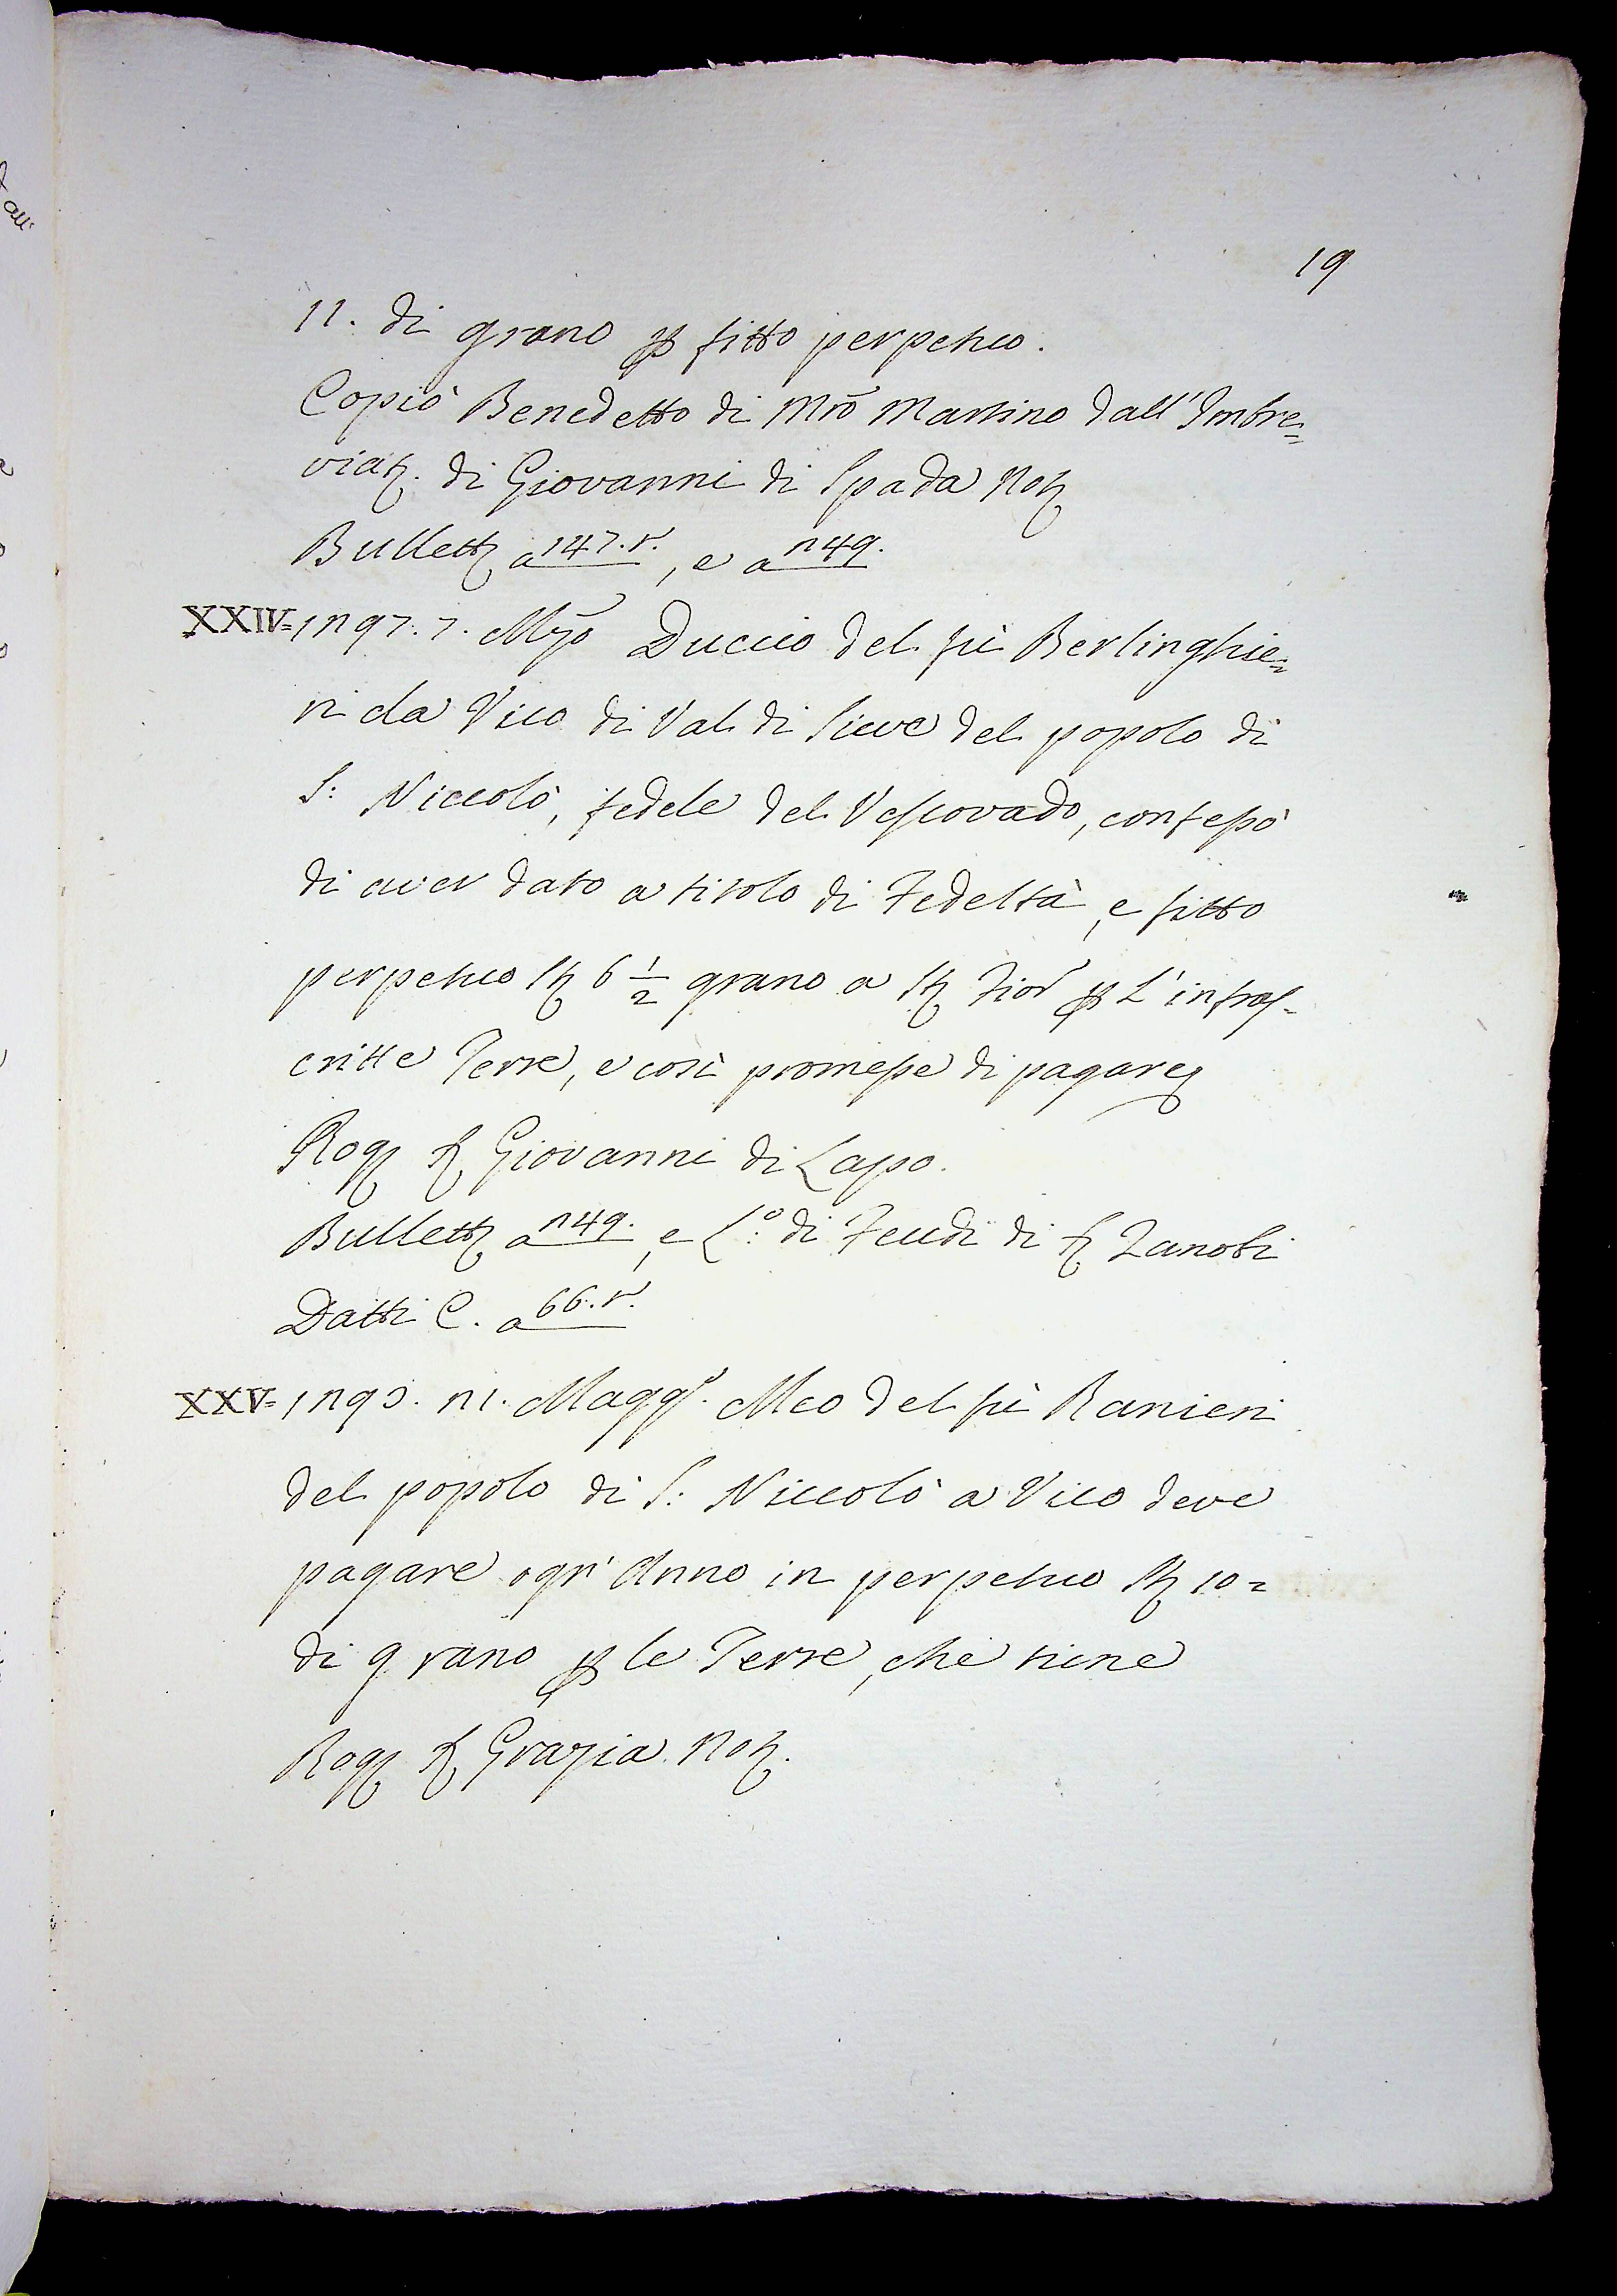 19
11. di grano p fitto perpetuo.
Copiò Benedetto di Mrõ Martino dall'Imbre=
viaz. di Giovanni di Spada Notz
Bullett a 147. r., e a 249.
XXIV= 1297. 7. Mgõ Duccio del fù Berlinghie=
ri da Vico di Val di Sieve del popolo di
S: Niccolò, fedele del Vescovado, confessò
di aver dato a titolo di Fedeltà, e fitto
perpetuo St 6 1/2 grano a St Fior p l'infras=
critte Terre, e così promesse di pagare
Rog S Giovanni di Lapo.
Bullett a 249., e L.º di Feudi di S Zanobi
Datti C. a 66. r.
XXV= 1293. 21. Magg. Meo del fù Ranieri
del popolo di S: Niccolò a Vico deve
pagare ogn'Anno in perpetuo St 10=
di grano p le Terre, che tiene
Rog S Grazia Not.
all'